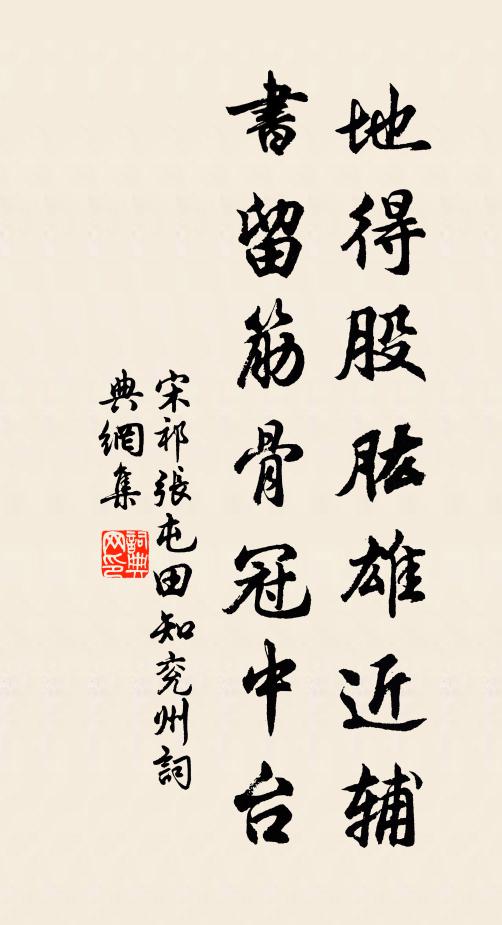 地得股肱雄近辅
書留筋骨冠中台
宋祁張屯田知兖州詞
典網集
詞典
网印